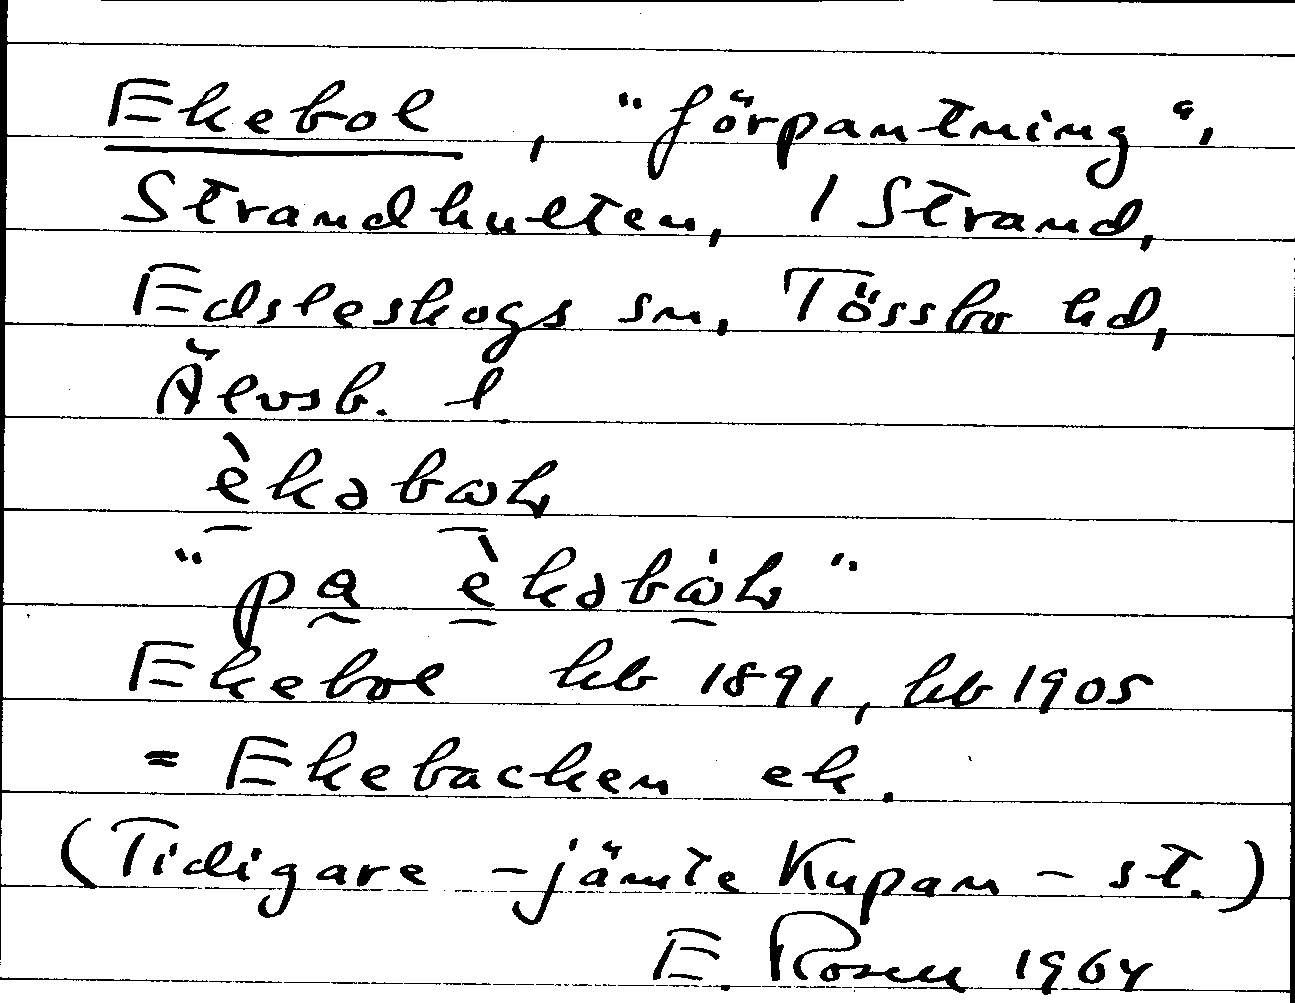 Ekebol, "förpantning",
Strandhulten, 1 Strand,
Edsleskogs sn, Tössbo hd,
Älvsb. l
"pa
Ekebol hb 1891, hb 1905
= Ekebacken ek.
(Tidigare - jämte Kupan - st.)
E. Rosell 1964